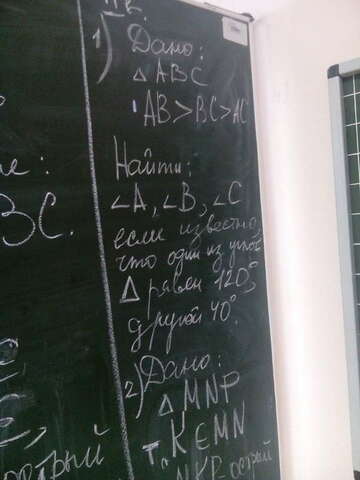 1) Дано:
△ ABC
AB > BC > AC
Найти:
∠A, ∠B, ∠C
если известно,
что один из углов
△ равен 120°,
другой 40°.
2) Дано:
△ MNP
т. K ∈ MN
NKP острый
е:
BC.
острый